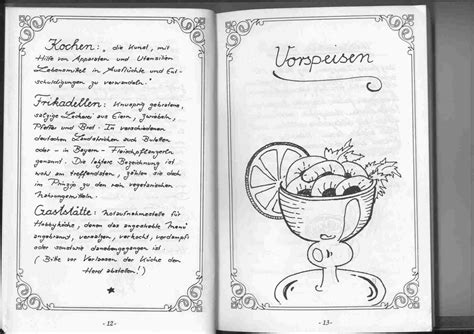 Kochen: die Kunst, mit
Hilfe von Apparaten und Utensilien
Lebensmittel in Ausflüchte und Ent-
schuldigungen zu verwandeln.
Frikadellen: Knusprig gebratene,
salzige Leckerei aus Eiern, Zwiebeln,
Pfeffer und Brot. In verschiedenen
deutschen Landstrichen auch Buletten
oder - in Bayern - Fleischpflanzerln
genannt. Die letztere Bezeichnung ist
wohl am treffendsten, zählen sie doch
im Prinzip zu den rein vegetarischen
Nahrungsmitteln.
Gaststätte: Notaufnahmestelle für
Hobbyköche, denen das angestrebte Menü
angebrannt, versalzen, verkocht, verdampft
oder sonstwie danebengegangen ist.
(Bitte vor Verlassen der Küche den
Herd abstellen!)
- 12 -
Vorspeisen
- 13 -